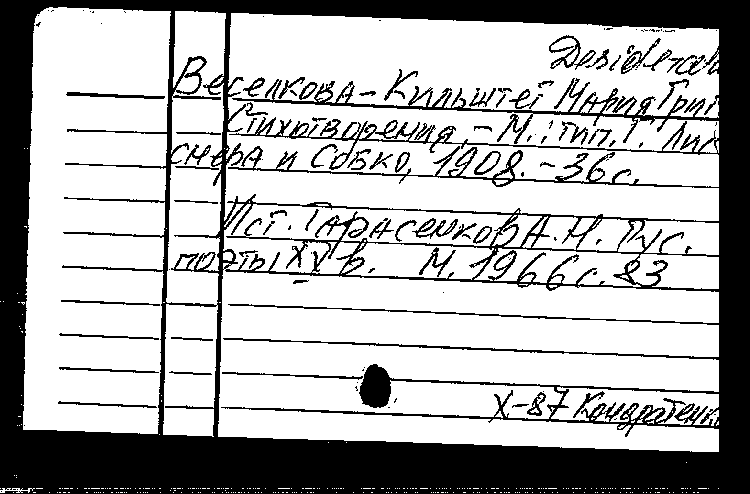 Desiderata
Веселкова-Кильштет Мария Григ
Стихотворения. – М.: тип. Г. Лис
снера и Собко, 1908. – 36 с.
Ист. Тарасенков А.Н. Рус.
поэты XX в. М. 1966 с. 83
X-87 Кондратенк